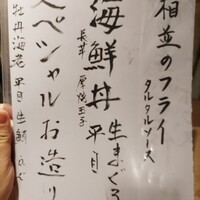 相並のフライ
タルタルソース
海鮮丼 生まぐろ
平目
長芋 厚焼玉子
スペシャルお造り
牡丹海老 平目 生鯖